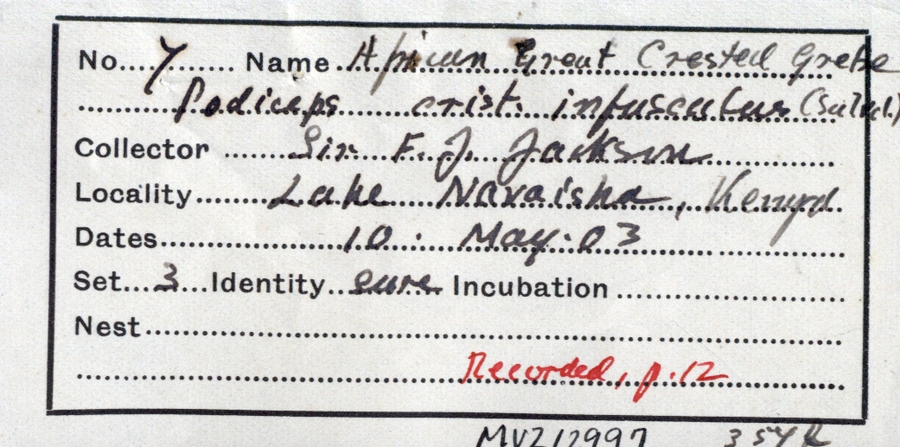 No. 7 Name African Great Crested Grebe
Podiceps crist. infuscatus (Salvad.)
Collector Sir F. J. Jackson
Locality Lake Navaisha, Kenya
Dates 10. May. 03
Set 3 Identity sure Incubation
Nest
Recorded, p. 12
MVZ 12997